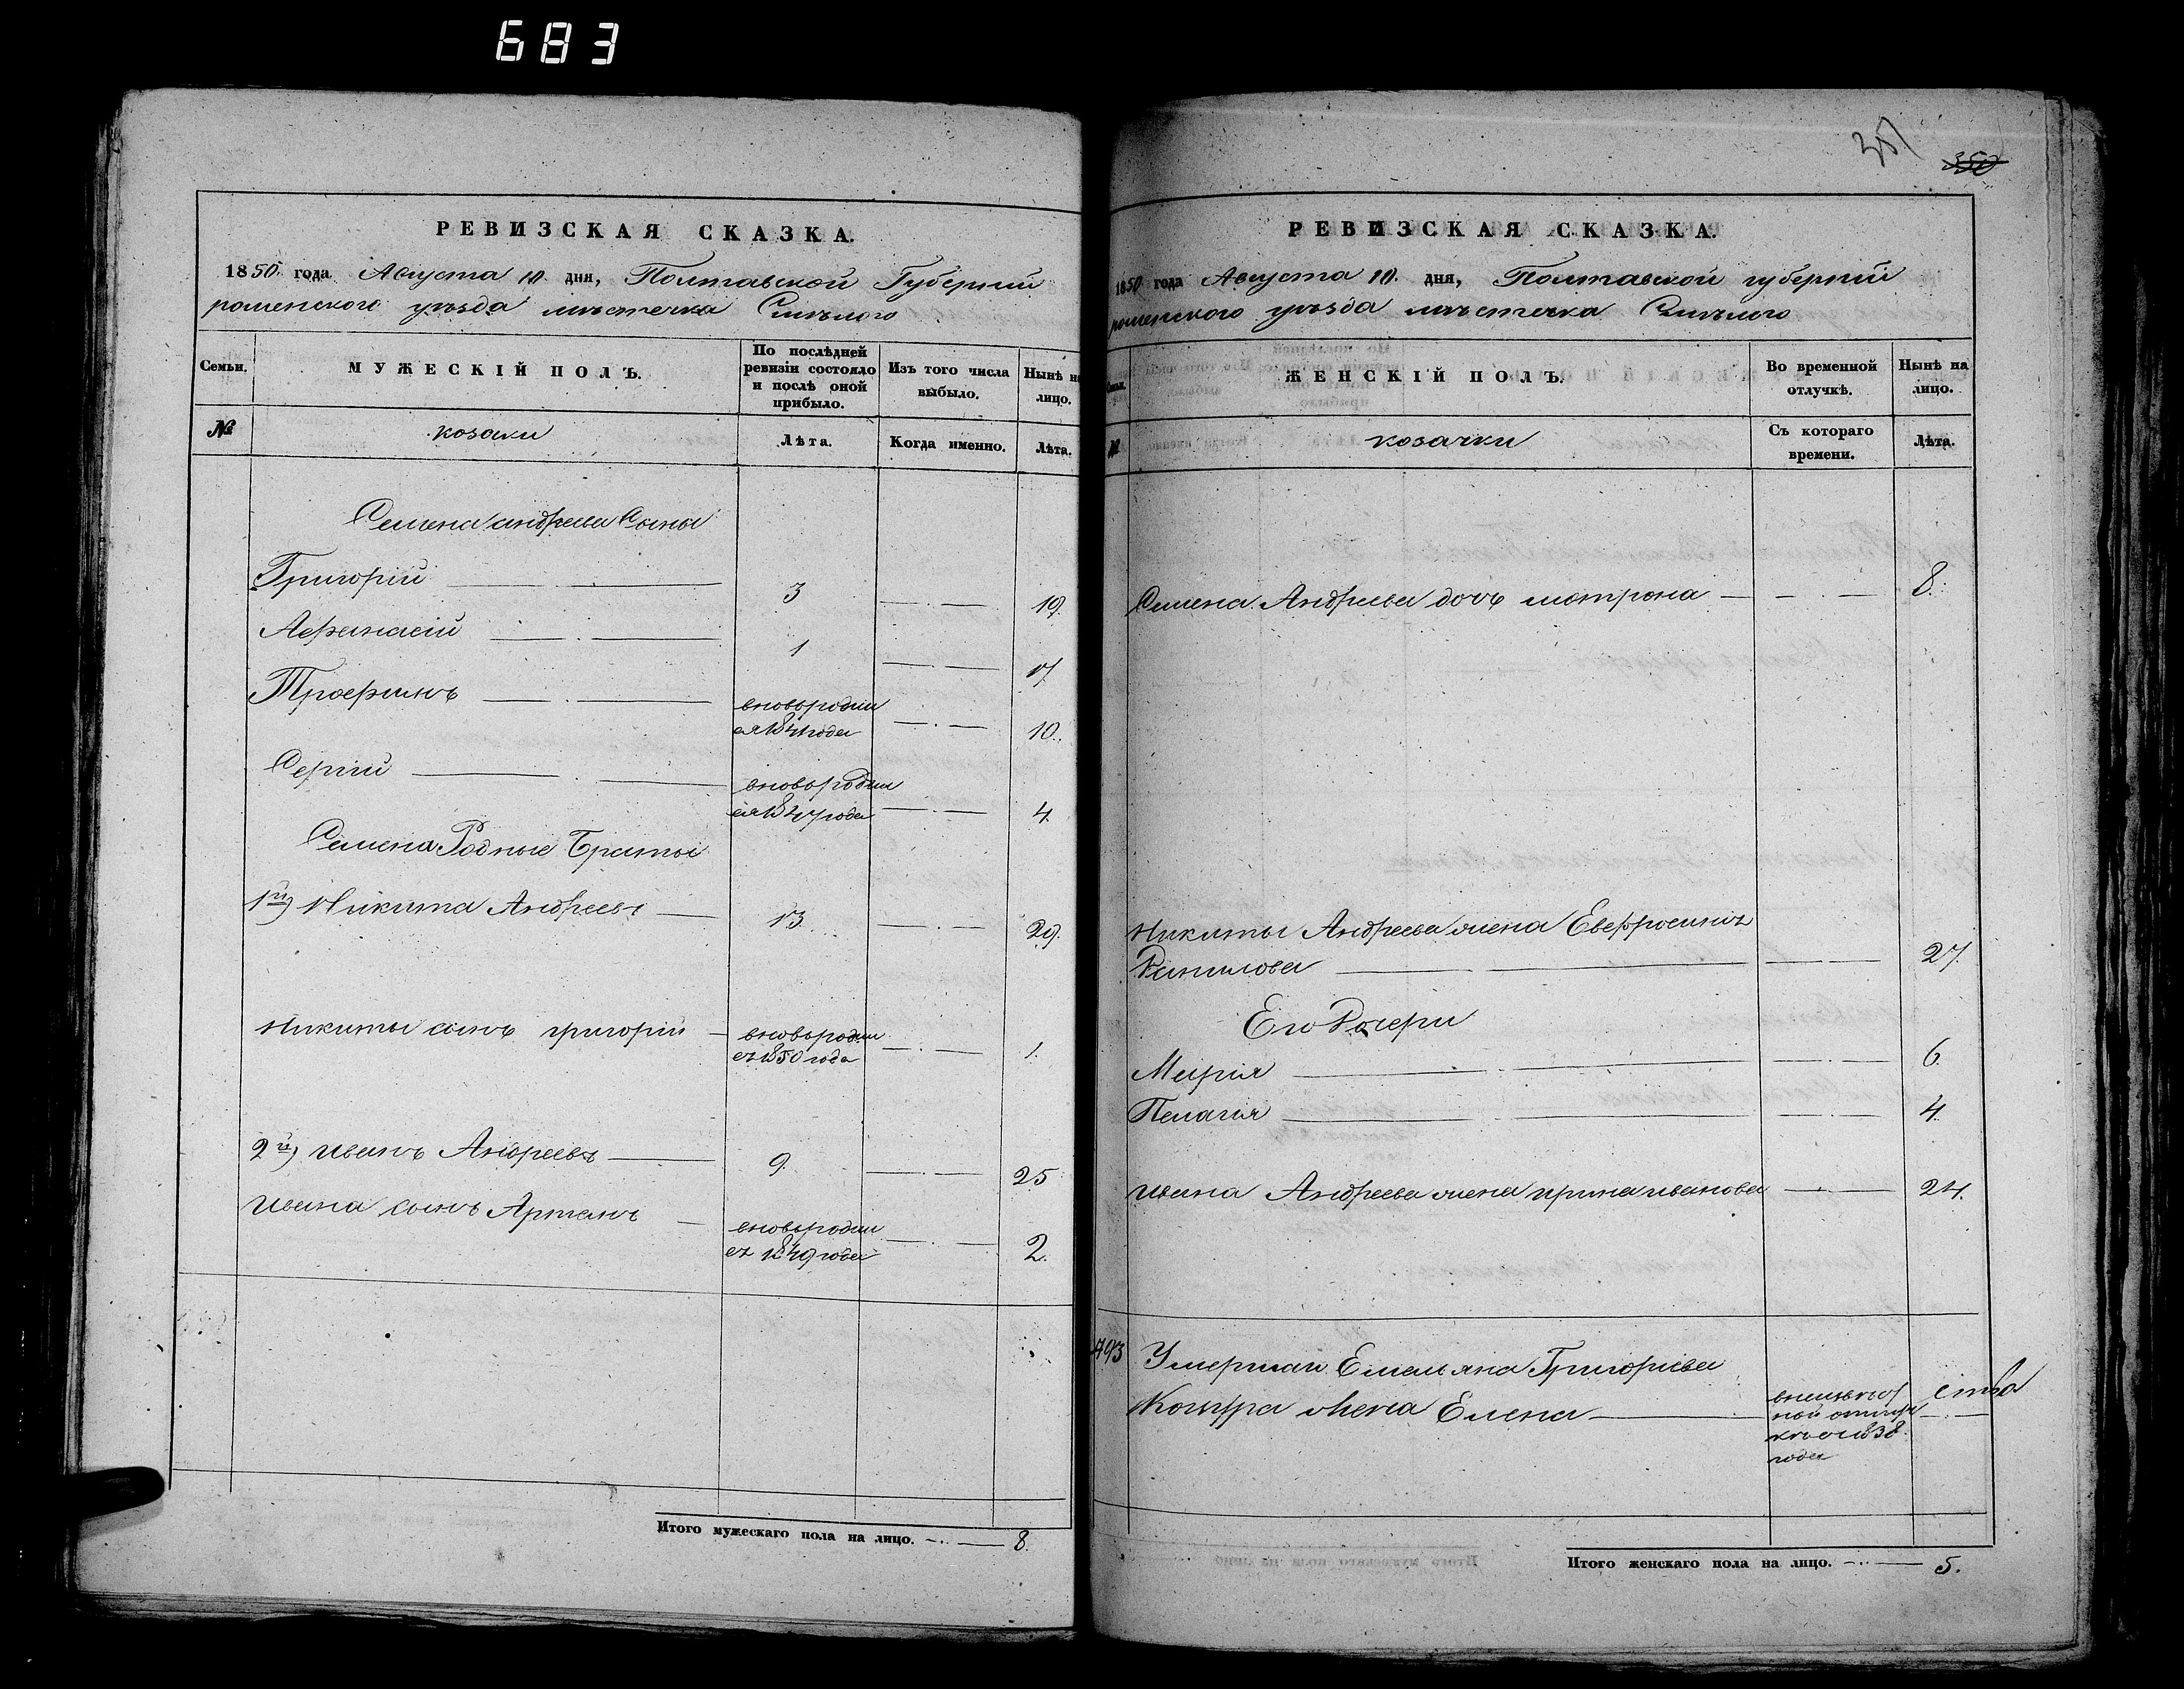 683
351
350
РЕВИЗСКАЯ СКАЗКА.
1850 года Августа 10. дня, Полтавской Губерніи
роменского уѣзда мѣстечка Смѣлого
Семьи.
МУЖЕСКІЙ ПОЛЪ.
По послѣдней ревизіи состояло и послѣ оной прибыло.
Изъ того числа выбыло.
Нынѣ на лицо.
№
козаки
Лѣта.
Когда именно.
Лѣта.
Семена андреева Сыны
Григорій 3 19.
Афанасій 1 17
Трофимъ вновь родил
ся 1841 года 10.
Сергій вновь родил
ся 1847 года 4.
Семена Родные Браты
1й) Никита Андреевъ 13 29.
Никиты сынъ григорій вновь родил
ся 1850 года 1.
2й) иванъ Андреевъ 9. 25
ивана сынъ Артемъ вновь родил
ся 1849 года 2.
Итого мужескаго пола на лицо. 8.
РЕВИЗСКАЯ СКАЗКА.
1850 года Августа 10. дня, Полтавской губерніи
роменского уѣзда мѣстечка Смѣлого
№
ЖЕНСКІЙ ПОЛЪ.
Во временной отлучкѣ.
Нынѣ на лицо.
козачки
Съ котораго времени.
Лѣта.
Семена Андреева дочь мотрона 8.
Никиты Андреева жена Евфросинія
Данилова 27.
Его Дочери
Марія 6.
Пелагія 4.
ивана Андреева жена ирина иванова 24.
793 Умершаи Емельяна Григоріева
жена Елена
1838
года
Итого женскаго пола на лицо. 5.